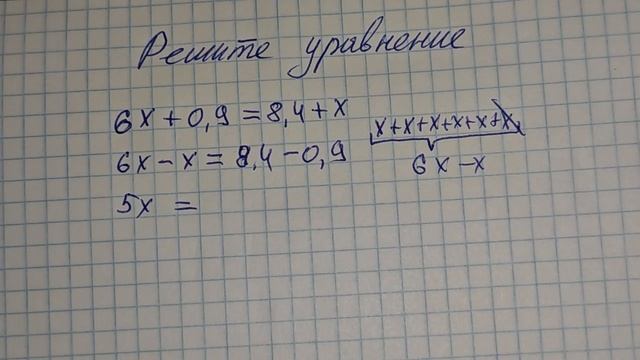 Решите уравнение
6x + 0,9 = 8,4 + x
x+x+x+x+x+x
6x - x = 8,4 - 0,9
6x - x
5x =